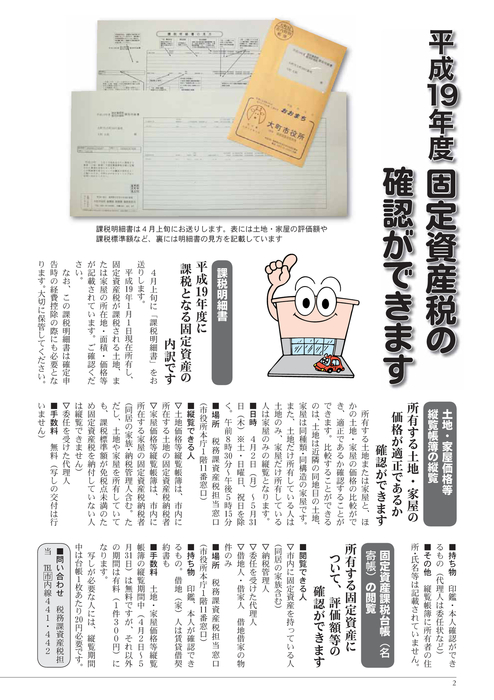 平成19年度 固定資産税の
確認ができます
おおまち
大町市役所
課税明細書は4月上旬にお送りします。表には土地・家屋の評価額や
課税標準額など、裏には明細書の見方を記載しています
課税明細書
平成19年度に
課税となる固定資産の
内訳です
4月上旬に「課税明細書」をお
送りします。
平成19年1月1日現在所有し、
固定資産税が課税される土地、ま
たは家屋の所在地・面積・価格等
が記載されています。ご確認くだ
さい。
なお、この課税明細書は確定申
告時の経費控除の際にも必要とな
ります。大切に保管してください。
土地・家屋価格等
縦覧帳簿の縦覧
所有する土地・家屋の
価格が適正であるか
確認ができます
所有する土地または家屋と、ほ
かの土地・家屋の価格の比較がで
き、適正であるか確認することが
できます。比較することができる
のは、土地は近隣の同地目の土地、
家屋は同種類・同構造の家屋です。
また、土地だけ所有している人は
土地のみ、家屋だけ所有している
人は家屋のみの縦覧となります。
■日時 4月2日(月)~5月31
日(木) ※土・日曜日、祝日を除
く。午前8時30分~午後5時15分
■場所 税務課資産税担当窓口
(市役所本庁1階11番窓口)
■縦覧できる人
▽土地価格等縦覧帳簿は、市内に
所在する土地の固定資産税納税者
▽家屋価格等縦覧帳簿は、市内に
所在する家屋の固定資産税納税者
(同居の家族・納税管理人含む。た
だし、土地や家屋を所有していて
も、課税標準額が免税点未満のた
め固定資産税を納付していない人
は縦覧できません)
▽委任を受けた代理人
■手数料 無料(写しの交付は行
いません)
■持ち物 印鑑・本人確認ができ
るもの(代理人は委任状など)
■その他 縦覧帳簿に所有者の住
所・氏名等は記載されていません。
固定資産課税台帳(名
寄帳)の閲覧
所有する固定資産に
ついて、評価額等の
確認ができます
■閲覧できる人
▽市内に固定資産を持っている人
(同居の家族含む)
▽納税管理人
▽委任を受けた代理人
▽借地人・借家人 借地借家の物
件のみ
■場所 税務課資産税担当窓口
(市役所本庁1階11番窓口)
■持ち物 印鑑、本人が確認でき
るもの、借地(家)人は賃貸借契
約書も
■手数料 土地・家屋価格等縦覧
帳簿の縦覧期間中(4月2日~5
月31日)は無料ですが、それ以外
の期間は有料(1件300円)に
なります。
写しが必要な人には、縦覧期間
中は台帳1枚あたり20円必要です。
■問い合わせ 税務課資産税担
当 市内線441・442
2